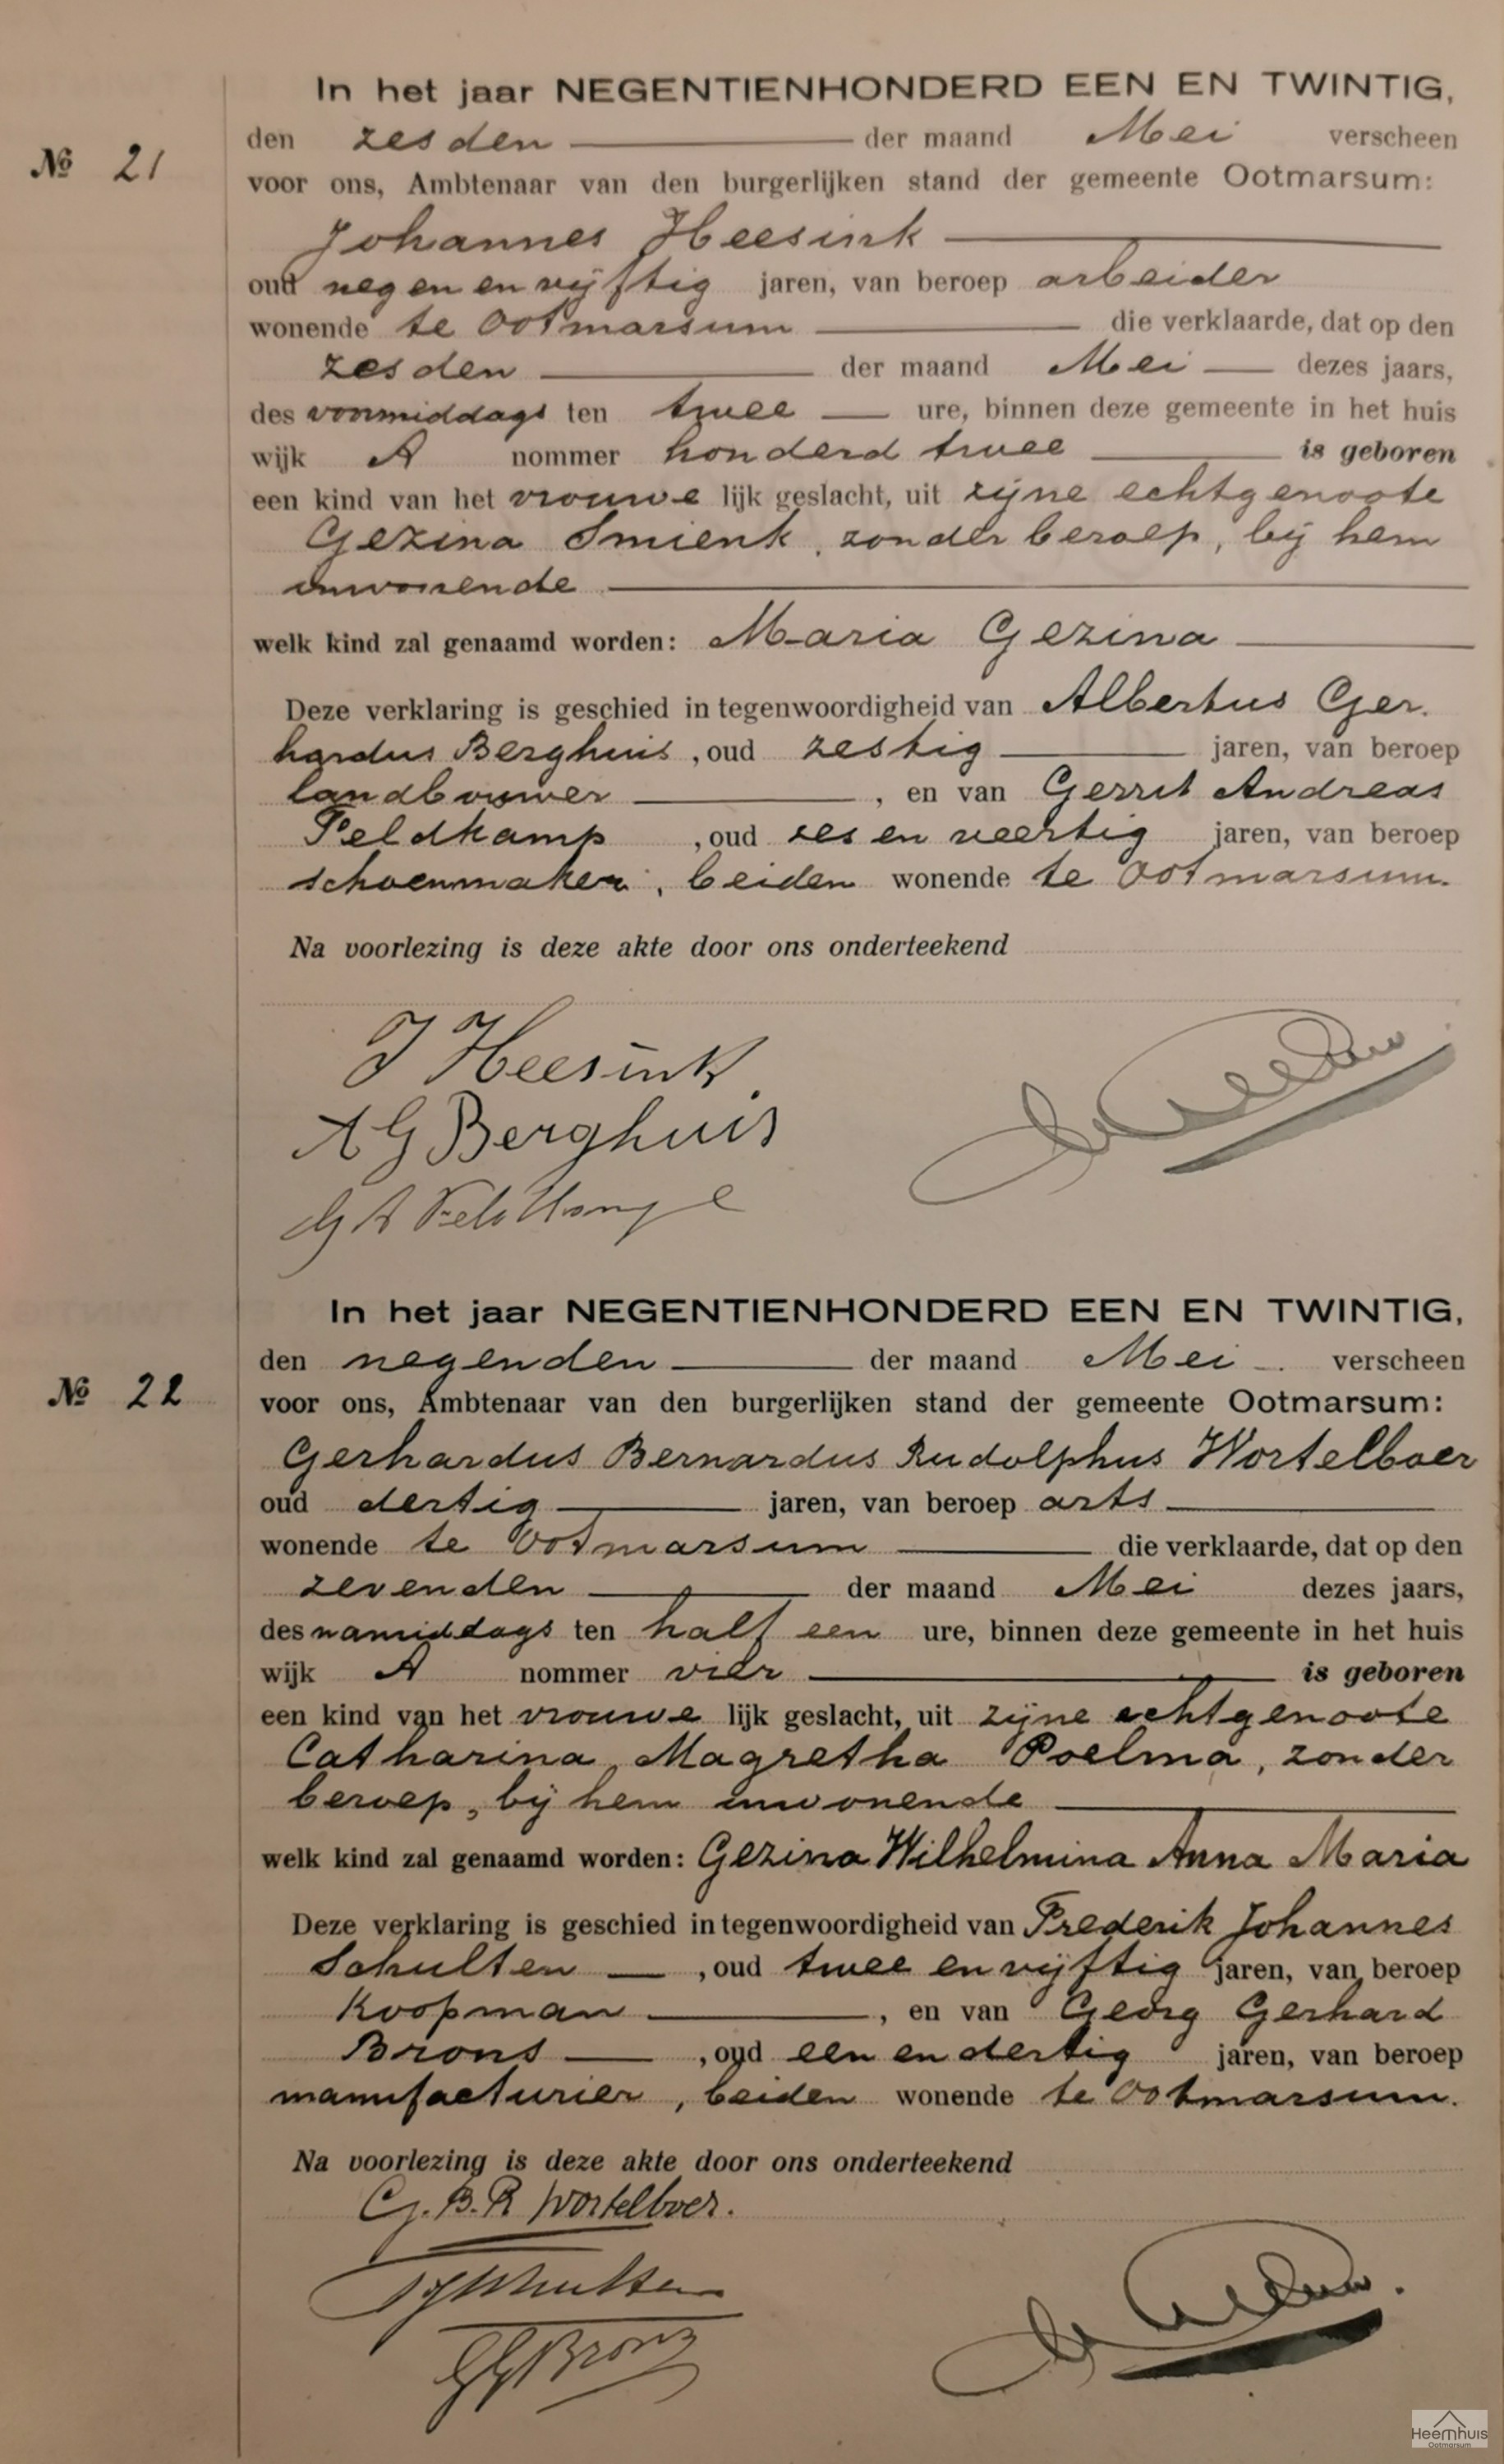 In het jaar NEGENTIENHONDERD EEN EN TWINTIG,
den zesden der maand Mei verscheen
№ 21
voor ons, Ambtenaar van den burgerlijken stand der gemeente Ootmarsum:
Johannes Heesink
oud negen en vijftig jaren, van beroep arbeider
wonende te Ootmarsum die verklaarde, dat op den
zesden der maand Mei dezes jaars,
des voormiddags ten twee ure, binnen deze gemeente in het huis
wijk A nommer honderd twee is geboren
een kind van het vrouwe lijk geslacht, uit zijne echtgenoote
Gezina Smienk, zonder beroep, bij hem
inwonende
welk kind zal genaamd worden: Maria Gezina
Deze verklaring is geschied in tegenwoordigheid van Albertus Ger-
hardus Berghuis, oud zestig jaren, van beroep
landbouwer, en van Gerrit Andreas
Veldkamp, oud zes en veertig jaren, van beroep
schoenmaker, beiden wonende te Ootmarsum.
Na voorlezing is deze akte door ons onderteekend
J Heesink
A G Berghuis
G A Veldkamp
In het jaar NEGENTIENHONDERD EEN EN TWINTIG,
den negenden der maand Mei verscheen
№ 22
voor ons, Ambtenaar van den burgerlijken stand der gemeente Ootmarsum:
Gerhardus Bernardus Rudolphus Wortelboer
oud dertig jaren, van beroep arts
wonende te Ootmarsum die verklaarde, dat op den
zevenden der maand Mei dezes jaars,
des namiddags ten half een ure, binnen deze gemeente in het huis
wijk A nommer vier is geboren
een kind van het vrouwe lijk geslacht, uit zijne echtgenoote
Catharina Magretha Poelma, zonder
beroep, bij hem inwonende
welk kind zal genaamd worden: Gezina Wilhelmina Anna Maria
Deze verklaring is geschied in tegenwoordigheid van Frederik Johannes
Schulten, oud twee en vijftig jaren, van beroep
Koopman, en van Georg Gerhard
Brons, oud een en dertig jaren, van beroep
manufacturier, beiden wonende te Ootmarsum.
Na voorlezing is deze akte door ons onderteekend
G. B. R Wortelboer.
FJ Schulten
GG Brons
Heemhuis
Ootmarsum